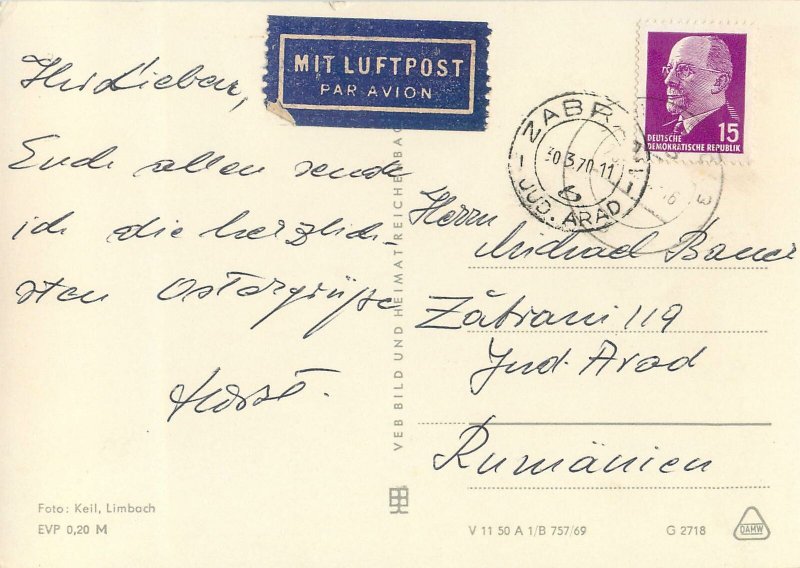 MIT LUFTPOST
PAR AVION
15
DEUTSCHE
DEMOKRATISCHE REPUBLIK
30.3.70-11
JUD. ARAD
Ihr Lieben,
Euch allen sende
ich die herzlich-
sten Ostergrüße
Horst.
Herrn
Andread Bauer
Zăbrani 119
Jud. Arad
Rumänien
VEB BILD UND HEIMAT REICHENBACH
Foto: Keil, Limbach
EVP 0,20 M
V 11 50 A 1/B 757/69
G 2718
DAMW